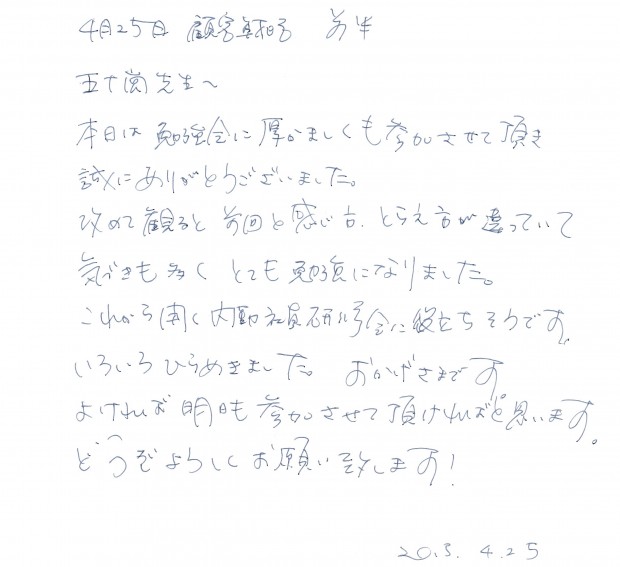 4月25日 顧客真相る 前半
五十嵐先生へ
本日は勉強会に厚かましくも参加させて頂き
誠にありがとうございました。
改めて観ると前回と感じ方、とらえ方が違っていて
気づきも多くとても勉強になりました。
これから開く内勤社員研修会に役立ちそうです。
いろいろひらめきました。おかげさまです。
よければ明日も参加させて頂ければと思います。
どうぞよろしくお願い致します!
4.25